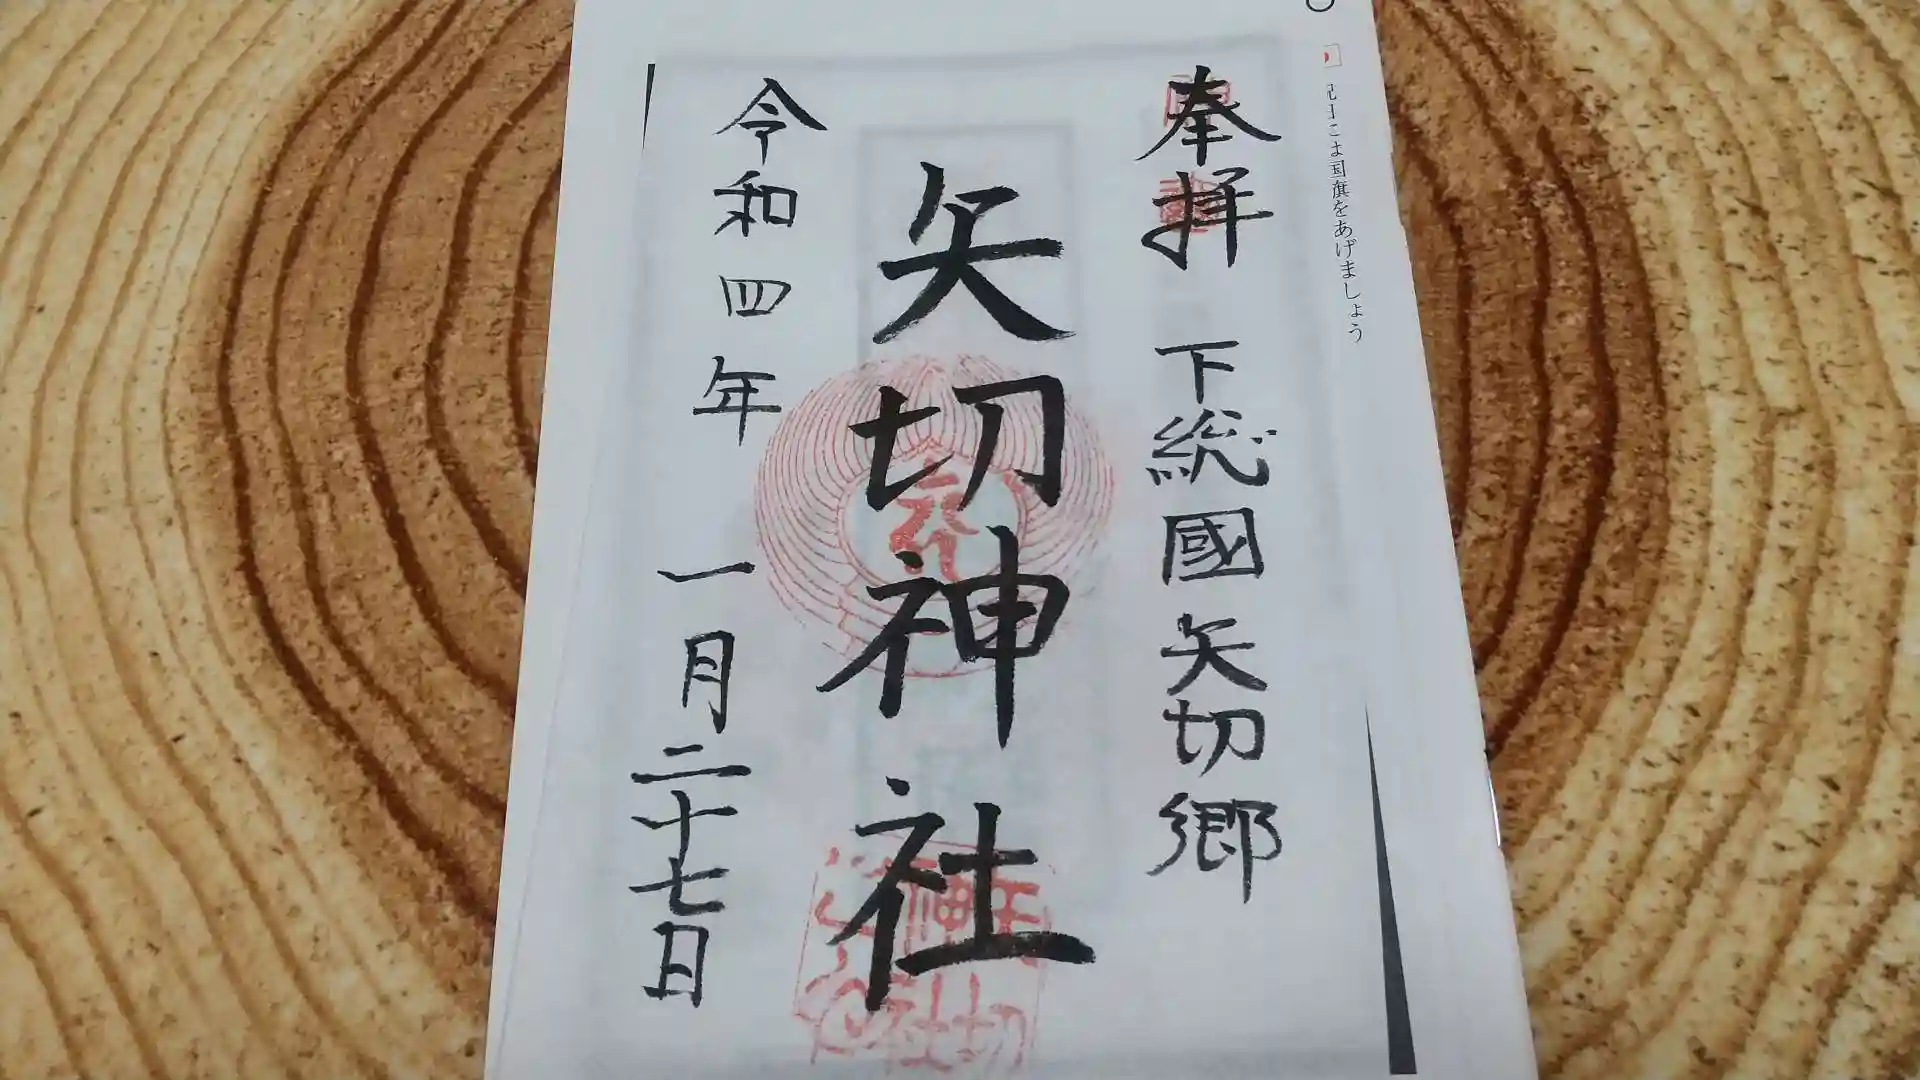 こは国旗をあげましょう
奉拝 下総國矢切郷
矢切神社
令和四年 一月二十七日